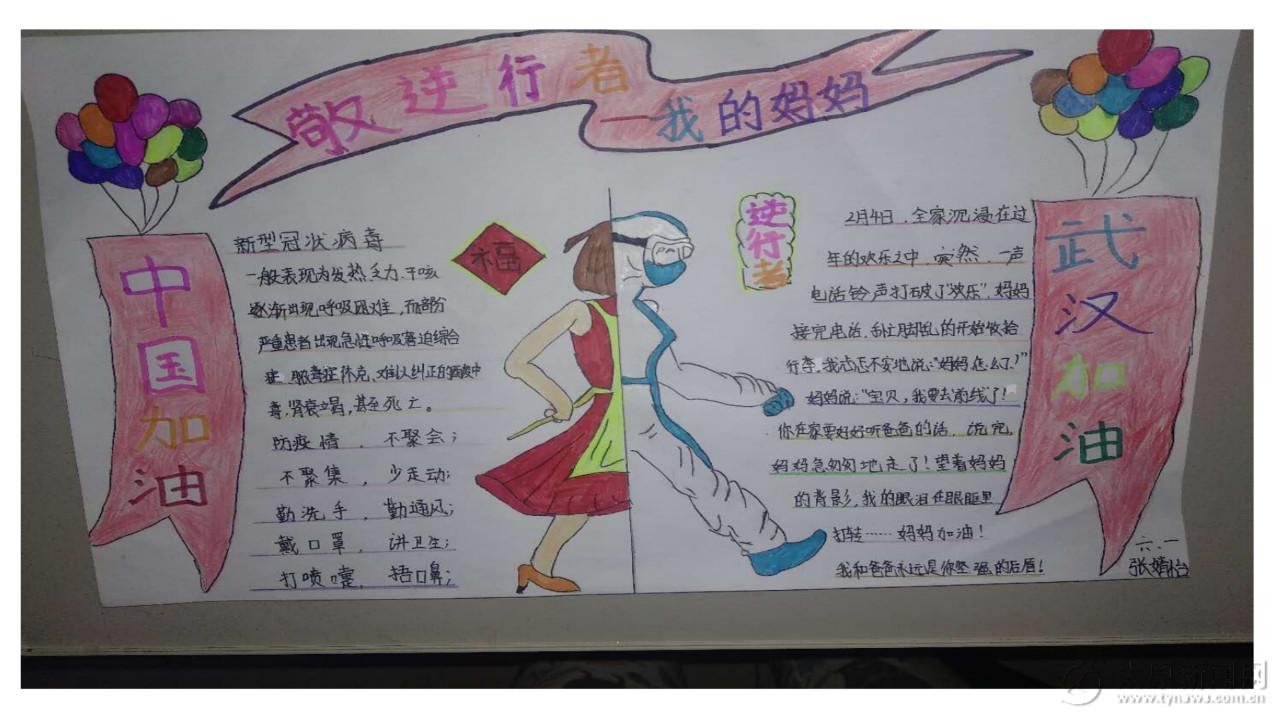 敬逆行者
—我的妈妈
中国加油
新型冠状病毒
一般表现为发热乏力、干咳
逐渐出现呼吸困难，而部分
严重患者出现急性呼吸窘迫综合
征、脓毒症休克、难以纠正的酸中
毒，肾衰竭，甚至死亡。
防疫情，不聚会；
不聚集，少走动；
勤洗手，勤通风；
戴口罩，讲卫生；
打喷嚏，捂口鼻；
福
逆行者
2月4日，全家沉浸在过
年的欢乐之中，突然，一声
电话铃声打破了“欢乐”，妈妈
接完电话，乱的开始收拾
行李。我忐忑不安地说：“妈妈怎么了？”
妈妈说：“宝贝，我要去前线了！
你在家要好好听爸爸的话，说完，
妈妈急匆匆地走了！望着妈妈
的背影，我的眼泪在眼眶里
打转……妈妈加油！
我和爸爸永远是你坚强的后盾！
武汉加油
六．一
张婧怡
www.tynews.com.cn